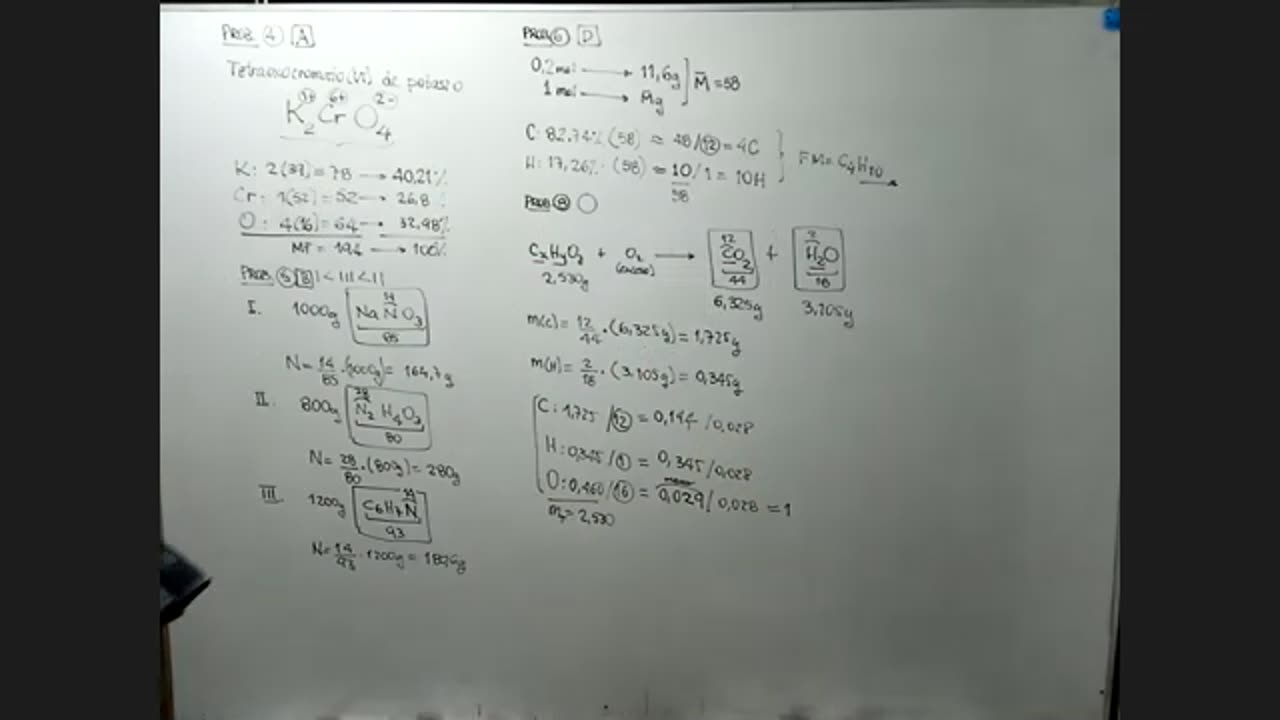 PROB. 4 A
Tetraoxocromato(VI) de potasio
1+ 6+ 2-
K2CrO4
K: 2(39)=78 → 40,21%
Cr: 1(52)=52 → 26,8
O: 4(16)=64 → 32,98%
MT = 194 → 100%
PROB. 5 B I<III<II
I. 1000g NaNO3
14
85
N=14/85·(1000g)= 164,7g
II. 800g N2H4O3
28
80
N=28/80·(800g)=280g
III. 1200g C6H7N
14
93
N=14/93·1200g=180,6g
PROB 6 D
0,2mol → 11,6g
1mol → Mg
M̄=58
C: 82,74%(58) ≈ 48/12=4C
H: 17,26%·(58) ≈ 10/1=10H
58
FM=C4H10
PROB 8
CxHyOz + O2 (exceso) → CO2 + H2O
12 2
44 18
2,530g 6,325g 3,105g
m(C)= 12/44·(6,325g)=1,725g
m(H)= 2/18·(3,105g)=0,345g
C:1,725/12=0,144/0,028
H:0,345/1=0,345/0,028
menor
O:0,460/16=0,029/0,028=1
mT=2,530